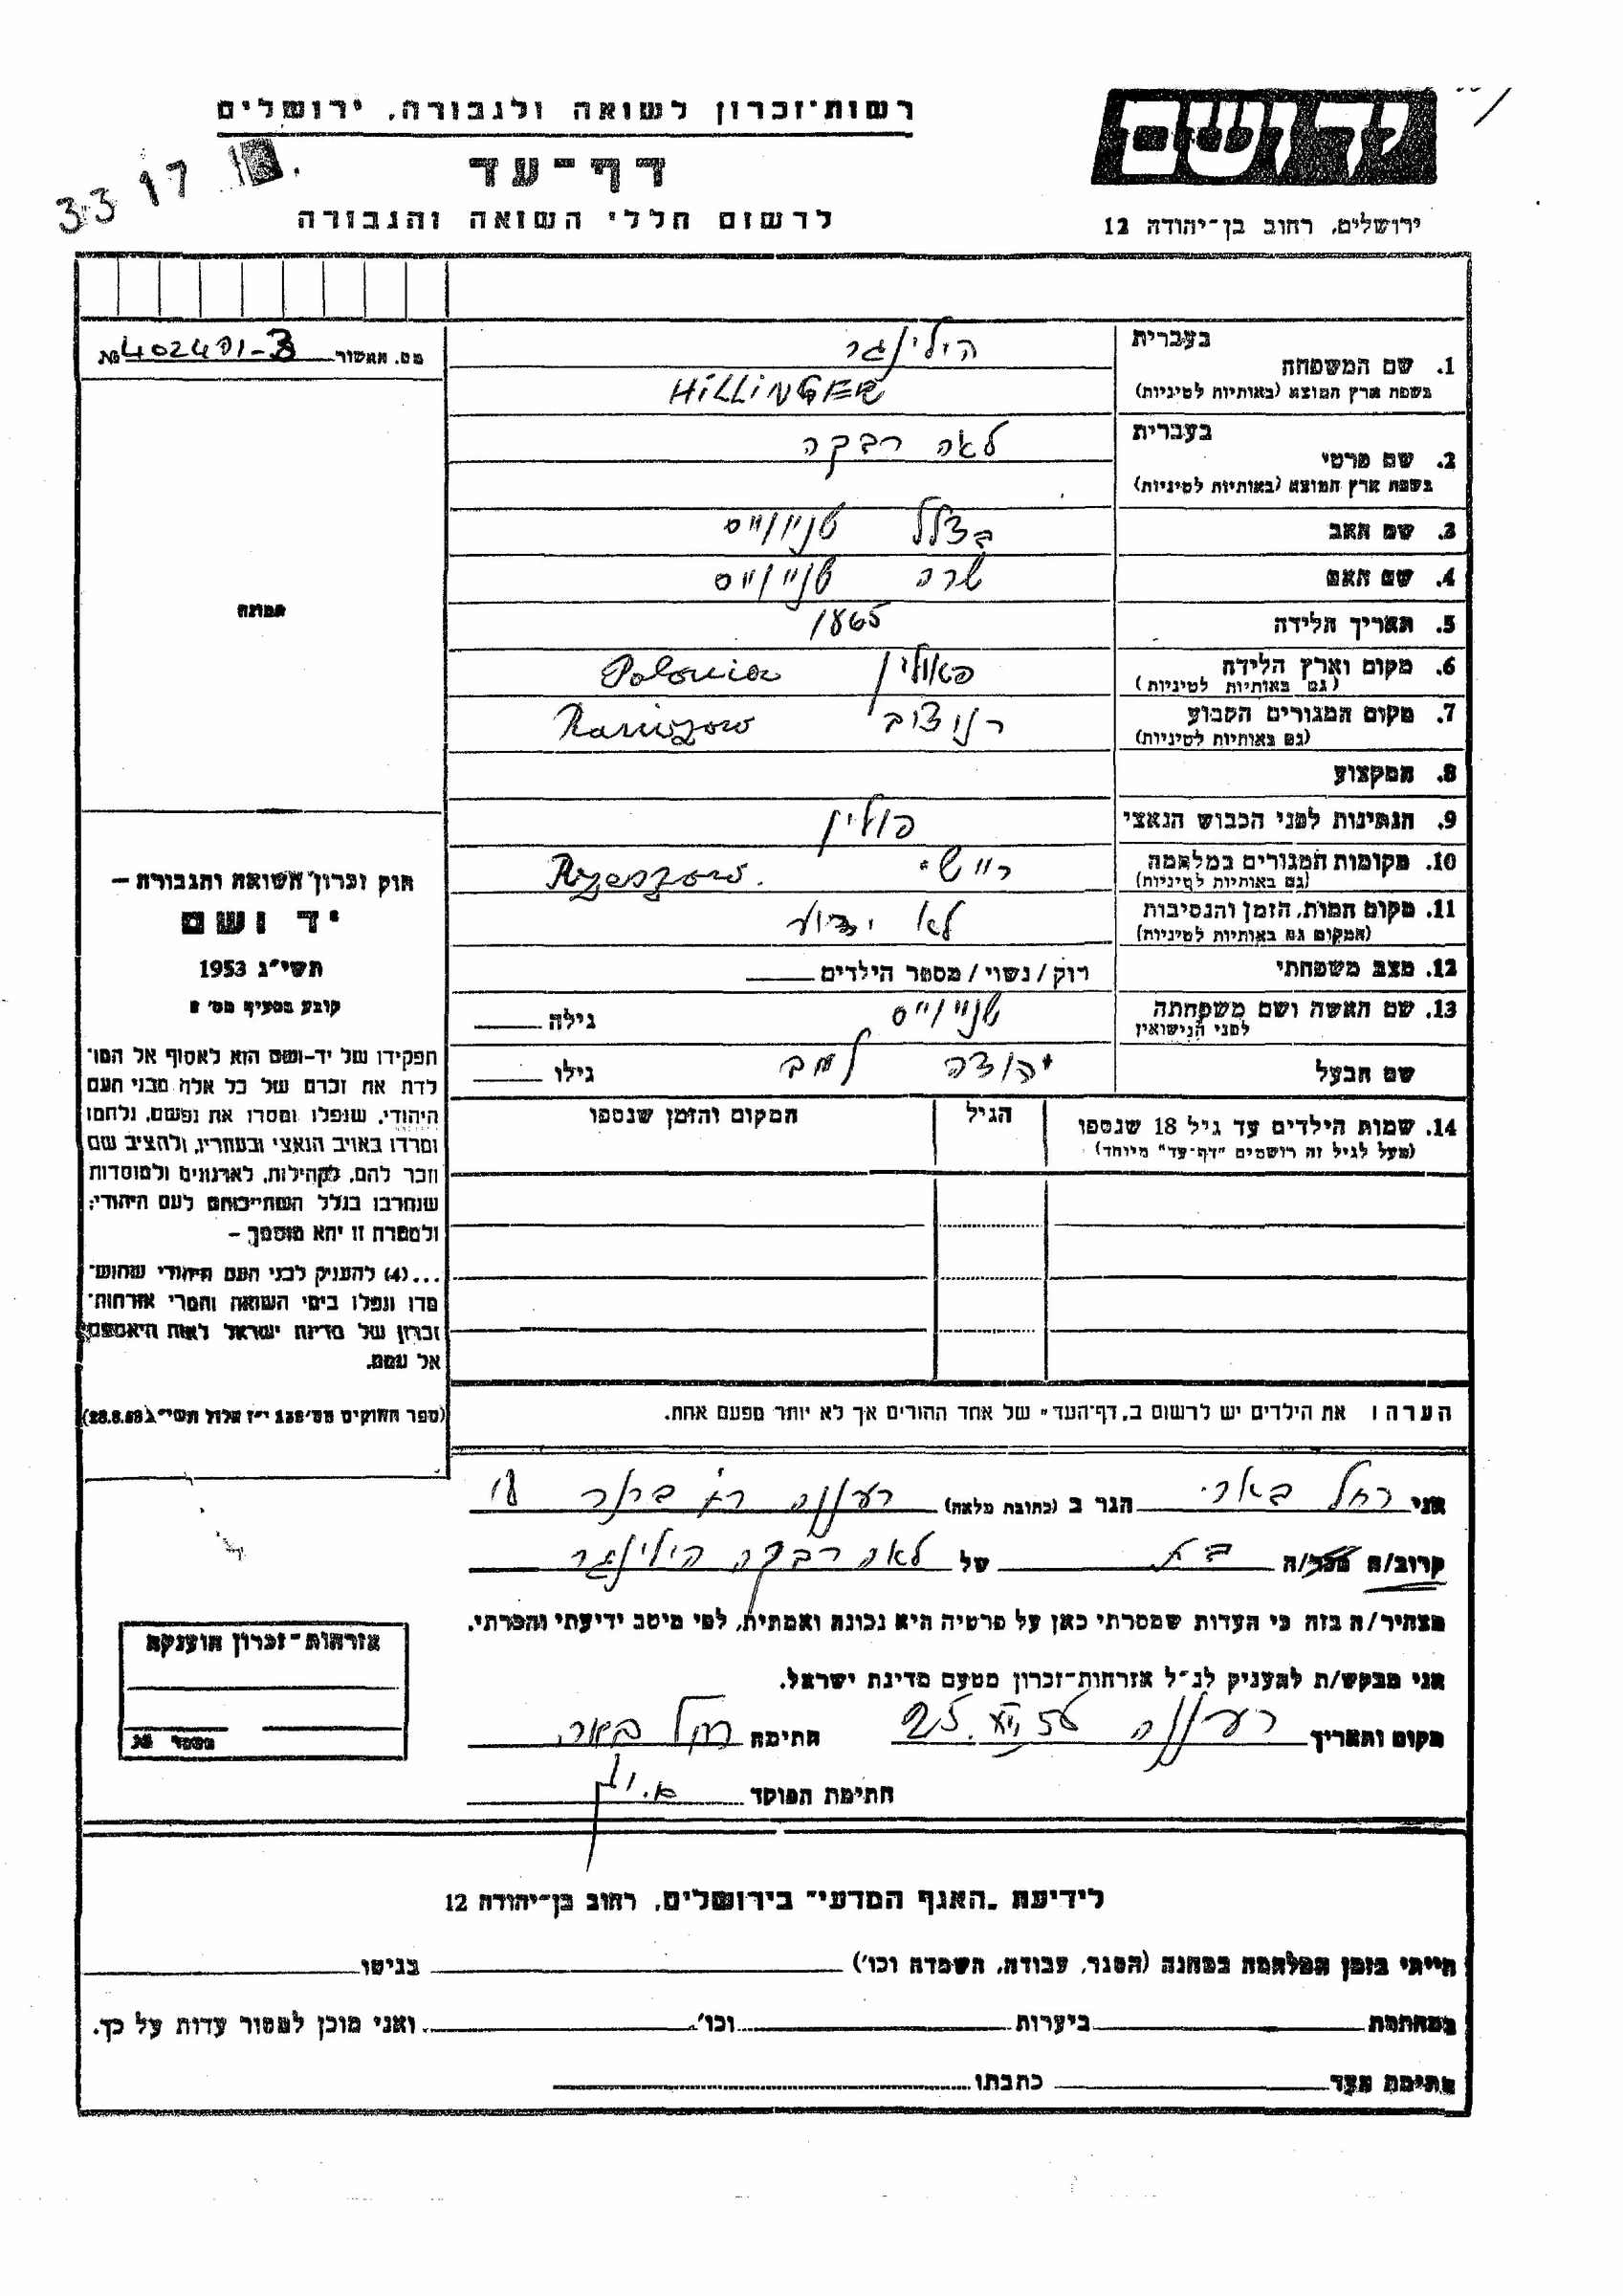 יד ושם
רשות־זכרון לשואה ולגבורה, ירושלים
דף־עד
לרשום חללי השואה והגבורה
ירושלים, רחוב בן־יהודה 12
33 17
מס. מאשור 402491-3 №
1. שם המשפחה בעברית הילינגר
בשפת ארץ המוצא (באותיות לטיניות) HiLLiNGER
2. שם פרטי בעברית לאה רבקה
בשפת ארץ המוצא (באותיות לטיניות)
3. שם האב בצלל שניוייס
4. שם האם שרה שנייוייס
5. תאריך הלידה 1865
6. מקום וארץ הלידה פאולין Polonia
(גם באותיות לטיניות)
7. מקום המגורים הקבוע רניצוב Raniszow
(גם באותיות לטיניות)
8. המקצוע
9. הנתינות לפני הכבוש הנאצי פולין
10. מקומות המגורים במלחמה ריישי Rzeszow.
(גם באותיות לטיניות)
11. מקום המות, הזמן והנסיבות לא ידוע
(המקום גם באותיות לטיניות)
12. מצב משפחתי רוק/נשוי/מספר הילדים
13. שם האשה ושם משפחתה שנייוייס גילה
לפני הנישואין
שם הבעל יהודה לב גילו
14. שמות הילדים עד גיל 18 שנספו הגיל המקום והזמן שנספו
(מעל לגיל זה רושמים "דף־עד" מיוחד)
תמונה
חוק זכרון השואה והגבורה –
יד ושם
תשי"ג 1953
קובע בסעיף מס' 2
תפקידו של יד-ושם הוא לאסוף אל המו־
לדת את זכרם של כל אלה מבני העם
היהודי, שנפלו ומסרו את נפשם, נלחמו
ומרדו באויב הנאצי ובעוזריו, ולהציב שם
וזכר להם, לקהילות, לארגונים ולמוסדות
שנחרבו בגלל השתייכותם לעם היהודי;
ולמטרה זו יהא מוסמך –
...(4) להעניק לבני העם היהודי שהוש־
מדו ונפלו בימי השואה והמרי אזרחות־
זכרון של מדינת ישראל לאות היאספם
אל עמם.
(ספר החוקים מס' 132 י"ז אלול תשי"ג 28.8.53)
הערה: את הילדים יש לרשום ב,,דף־העד" של אחד ההורים אך לא יותר מפעם אחת.
אני רחל באר הגר ב (כתובת מלאה) רעננה
קרוב/ה מכר/ה בת של לאה רבקה הילינגר
מצהיר/ה בזה כי העדות שמסרתי כאן על פרטיה היא נכונה ואמתית, לפי מיטב ידיעתי והכרתי.
אני מבקש/ת להעניק לנ"ל אזרחות־זכרון מטעם מדינת ישראל.
מקום ותאריך רעננה 25.XII.56 חתימה רחל באר
חתימת הפוקד
אזרחות־זכרון הוענקה
מספר
לידיעת "האגף המדעי" בירושלים, רחוב בן־יהודה 12
הייתי בזמן המלחמה במחנה (הסגר, עבודה, השמדה וכו') בגיטו
במחתרת ביערות וכו' ואני מוכן למסור עדות על כך.
חתימת העד כתבתו